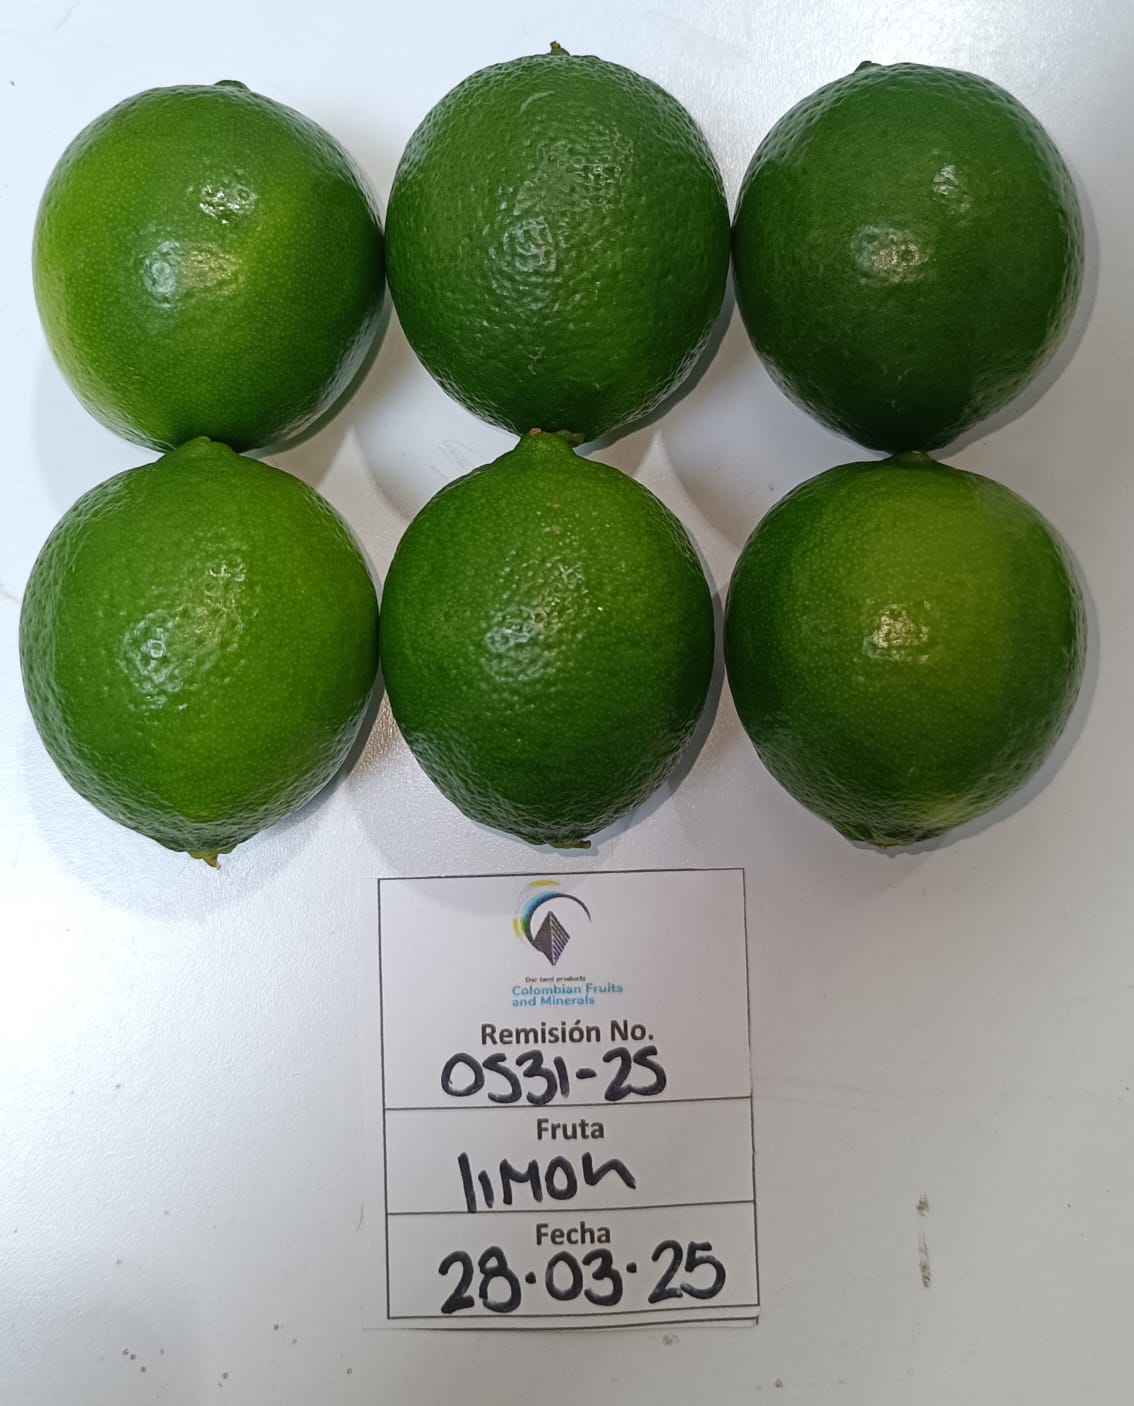 Our land products
Colombian Fruits
and Minerals
Remisión No.
0531-25
Fruta
limon
Fecha
28·03·25